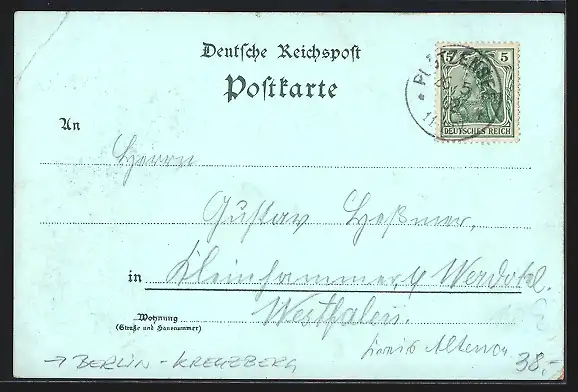 Deutsche Reichspost
Postkarte
5 5
DEUTSCHES REICH
An
Herrn
Gustav Heßmer,
in Kleinhammer, b/ Werdohl.
Wohnung
(Straße und Hausnummer)
Westfalen.
Kreis Altena
→ BERLIN - KREUZBERG
38,-